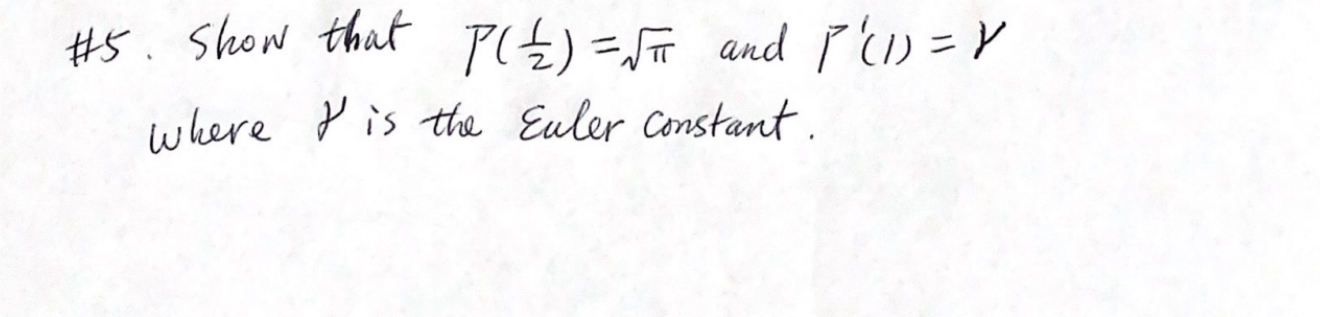 #5. Show that Γ(1/2) = √π and Γ'(1) = γ
where γ is the Euler constant.